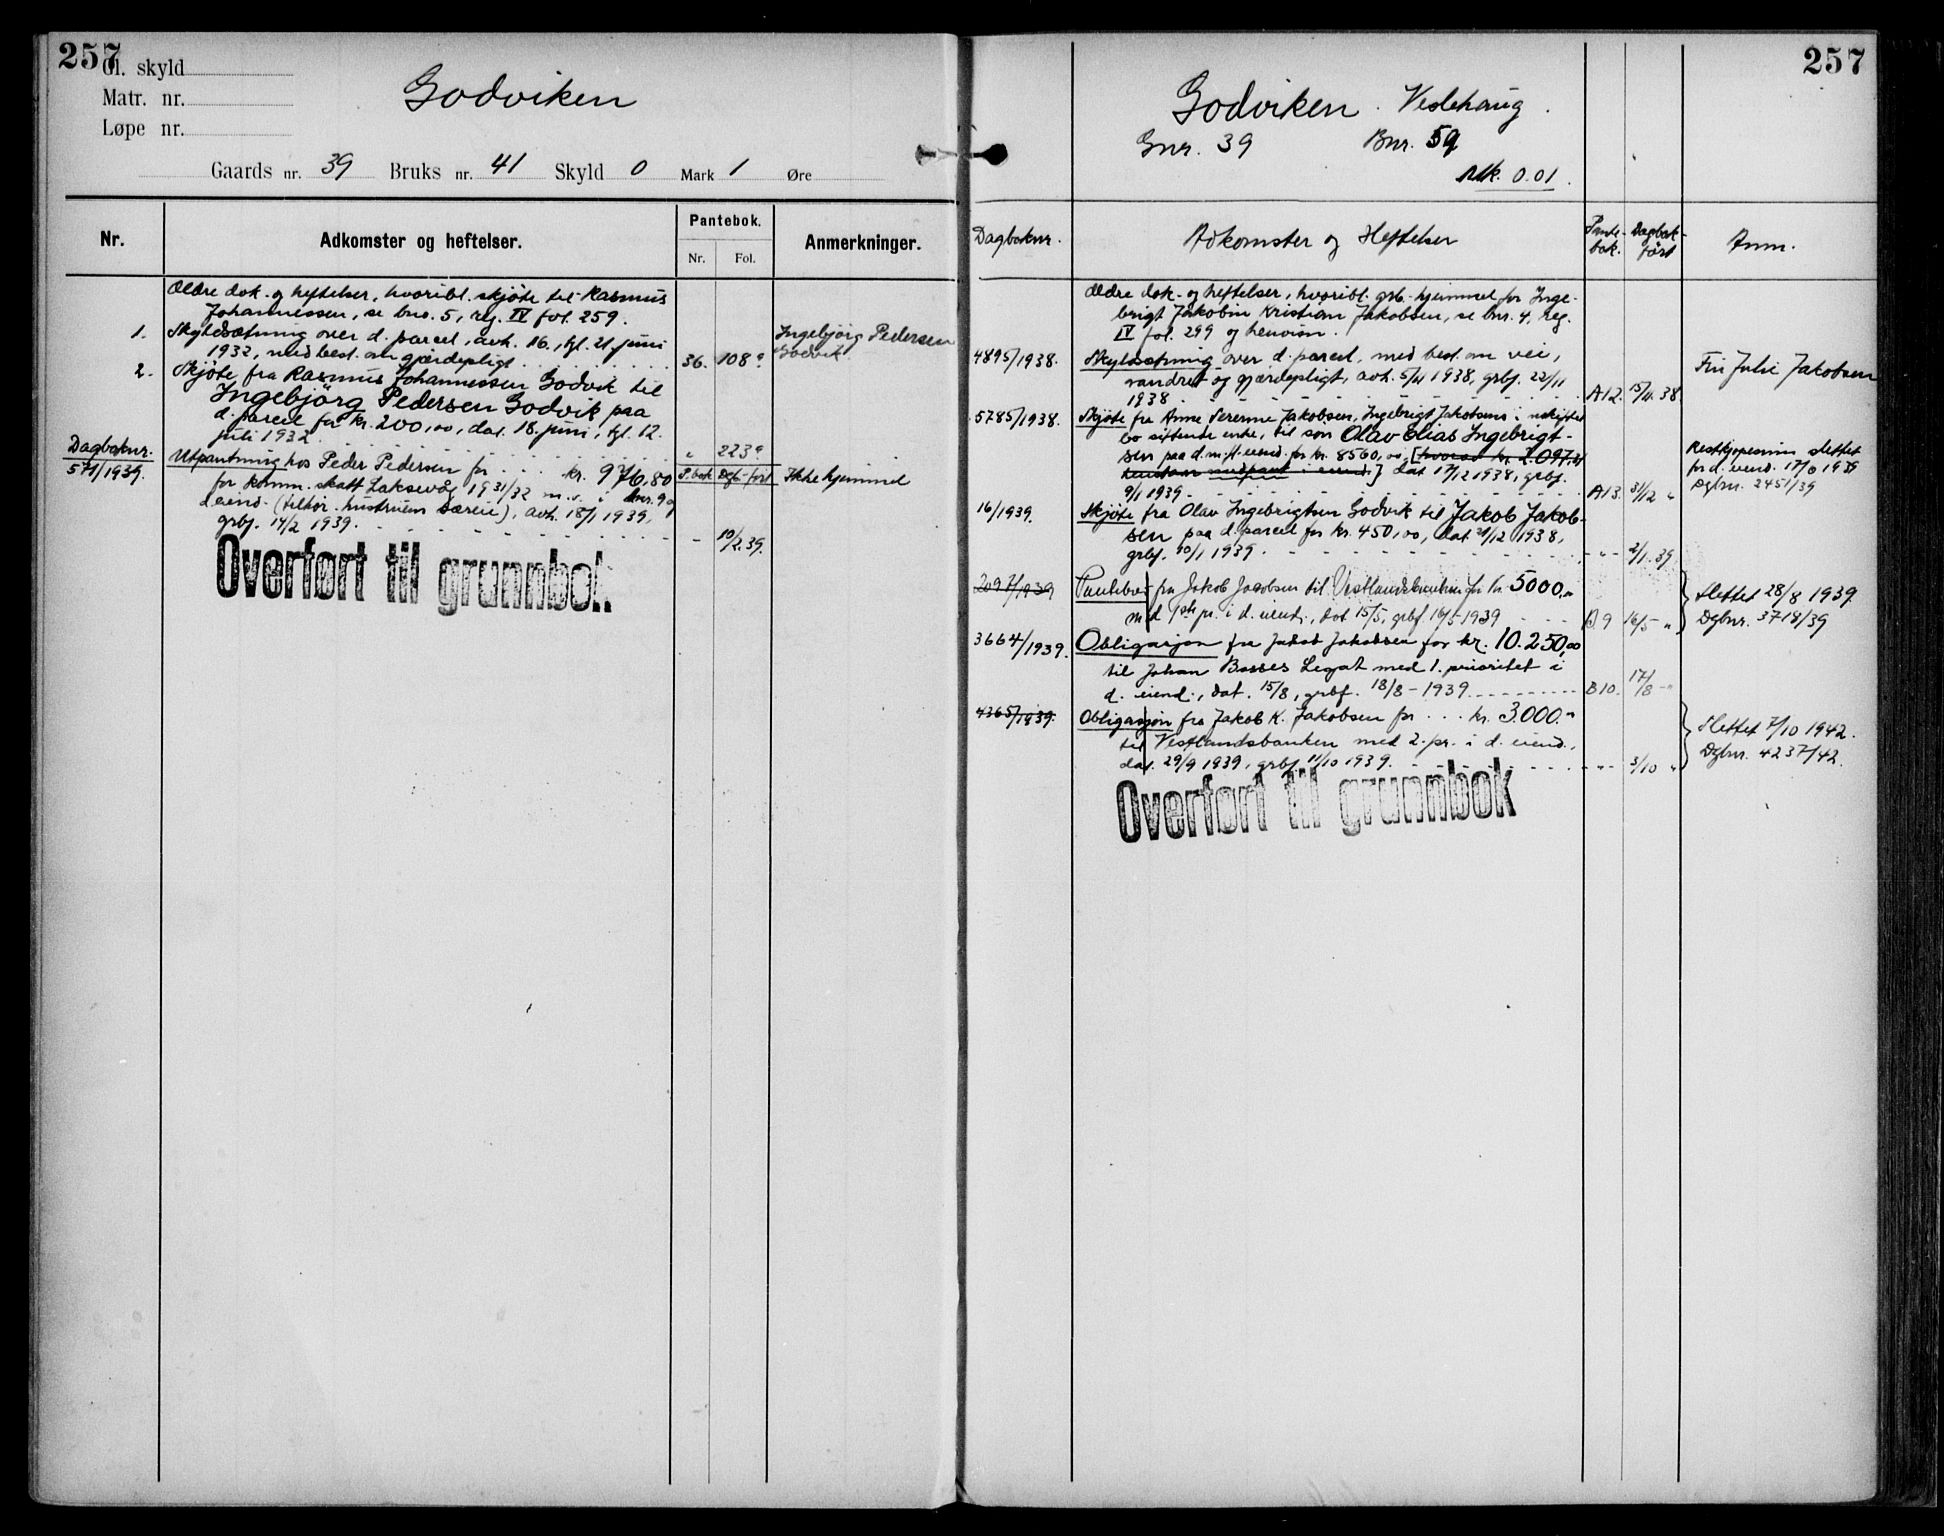 257
Gl. skyld
Matr. nr.
Løpe nr.
Godviken
Gaards nr. 39 Bruks nr. 41 Skyld 0 Mark 1 Øre
Nr.
Adkomster og heftelser.
Pantebok.
Nr. Fol.
Anmerkninger.
Ældre dok- og heftelser, hvoribl. skjöte til Rasmus
Johannessen, se bno. 5, reg. IV fol. 259.
1. Skyldsætning over d. parcel, avh. 16., tgl. 21 juni
1932, med best. om gjærdepligt 36. 108a
Ingebjörg Pedersen
Godvik
2. Skjöte fra Rasmus Johannessen Godvik til
Ingebjörg Pedersen Godvik paa
d. parcel for kr. 200,00, dat. 18. juni, tgl. 12.
juli 1932 " 223a
Dagboknr.
571/1939.
Utpantning hos Peder Pedersen for kr. 976,80 P.bok Dgb.ført Ikke hjemmel
for komm. skatt Laksevåg 1931/32 m.v. i bnr. 9 og
d. eiend. (tilhör. hustruens særeie), avh. 18/1 1939,
grbf. 14/2 1939. - 10/2.39.
Overført til grunnbok
257
Godviken. Veslehaug.
Gnr. 39 Bnr. 59
Mk. 0.01.
Dagboknr.
Adkomster og Heftelser
Pante-
bok.
Dagbok-
ført
Anm.
Ældre dok- og heftelser, hvoribl. grb.-hjemmel for Inge-
brigt Jakobin Kristian Jakobsen, se bnr. 4, reg.
IV fol. 299 og henvisn.
4895/1938. Skyldsætning over d. parcel, med best. om vei,
vandret og gjærdepligt, avh. 5/11 1938, grbf. 22/11
1938 A12. 15/11.38.
Fru Julie Jakobsen
5785/1938. Skjöte fra Anne Sererine Jakobsen, Ingebrigt Jakobsens i uskiftet
bo sittende enke, til sön Olav Elias Ingebrigt-
sen paa d. m.fl. eiend. for kr. 8560,00, [hvorav kr. 2.097,21
henstaar med pant i eiend.] dat 17/12 1938, grbf.
9/1 1939 A13. 31/12 "
Restkjøpesum slettet
for d. eiend. 1939
Dgbnr. 2451/39
16/1939. Skjöte fra Olav Ingebrigtsen Godvik til Jakob Jakob-
sen paa d. parcel for kr. 450,00, dat. 31/12 1938,
grbf. 10/1 1939. -"- 2/1.39
2097/1939 Pantebrev fra Jakob Jacobsen til Vestlandsbanken for kr. 5000,-
med 1ste pr. i d. eiend., dat 15/5, grbf. 16/5-1939 B9 16/5 "
Slettet 28/8 1939.
Dgbnr. 3718/39
3664/1939. Obligasjon fra Jakob Jakobsen for kr. 10.250,00
til Johan Basses Legat med 1. prioritet i
d. eiend., dat. 15/8, grbf. 18/8-1939 B10. 17/8 -"
4365/1939. Obligasjon fra Jakob K. Jakobsen for kr. 3.000.-
til Vestlandsbanken med 2. pr. i d. eiend.,
dat. 29/9 1939, grbf. 11/10 1939. -"- 3/10 "
Slettet 7/10 1942.
Dgbnr. 4237/42.
Overført til grunnbok